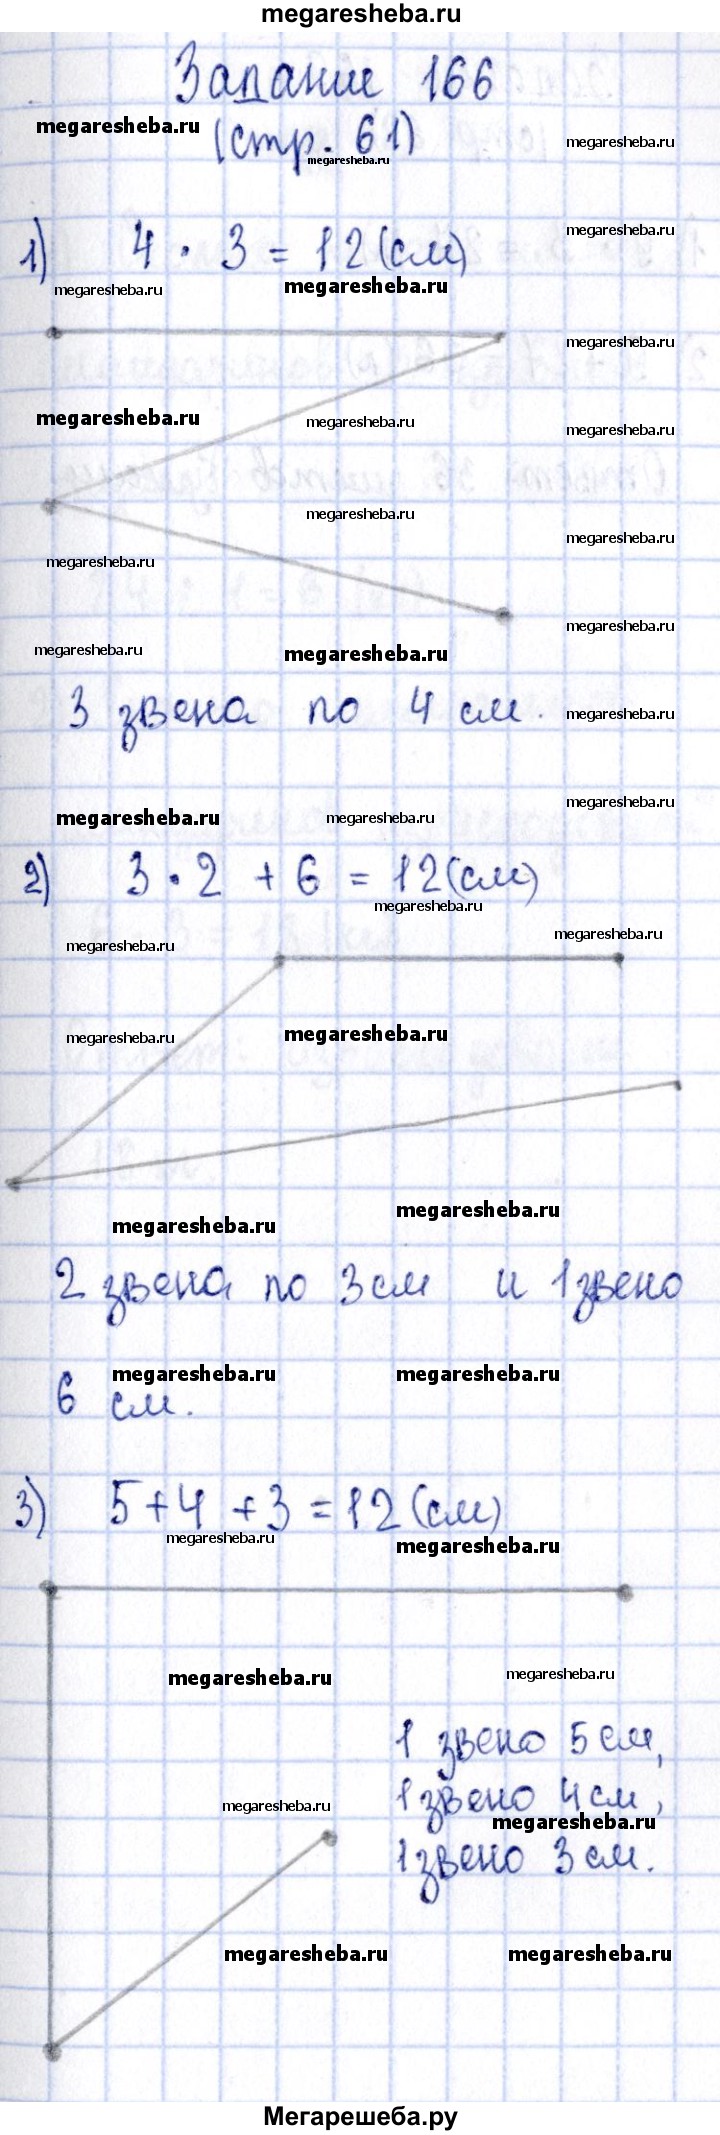 megaresheba.ru
Задание 166
megaresheba.ru
(стр. 61)
megaresheba.ru
megaresheba.ru
megaresheba.ru
1) 4 · 3 = 12 (см)
megaresheba.ru
megaresheba.ru
megaresheba.ru
megaresheba.ru
megaresheba.ru
megaresheba.ru
megaresheba.ru
megaresheba.ru
megaresheba.ru
megaresheba.ru
megaresheba.ru
megaresheba.ru
3 звена по 4 см.
megaresheba.ru
megaresheba.ru
megaresheba.ru
megaresheba.ru
2) 3 · 2 + 6 = 12 (см)
megaresheba.ru
megaresheba.ru
megaresheba.ru
megaresheba.ru
megaresheba.ru
megaresheba.ru
megaresheba.ru
2 звена по 3 см и 1 звено
megaresheba.ru
megaresheba.ru
6 см.
3) 5 + 4 + 3 = 12 (см)
megaresheba.ru
megaresheba.ru
megaresheba.ru
megaresheba.ru
1 звено 5 см,
1 звено 4 см,
megaresheba.ru
megaresheba.ru
1 звено 3 см.
megaresheba.ru
megaresheba.ru
Мегарешеба.ру